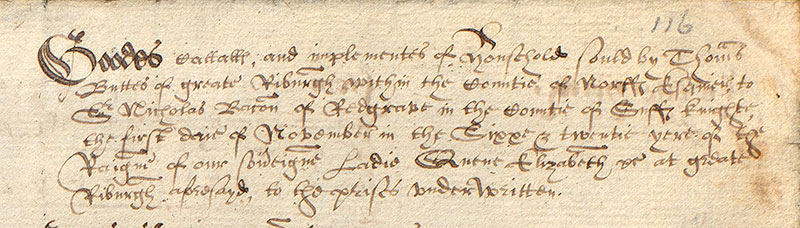 116
Goodes Cattalls, and implementes of Houshold sould by Thoms
Buttes of greate Riburgh within the Countie of Norff Esquier, to
Sr Nicholas Bacon of Redgrave in the Countie of Suff knighte,
the first daie of November in the Sixxe & twentie yere of the
Raigne of our soveigne Ladie Quene Elizabeth &c at greate
Riburgh aforesayd, to the prises underwritten.